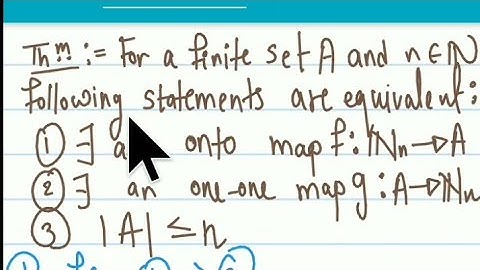 Thm := For a finite set A and n ∈ ℕ
following statements are equivalent:
① ∃ onto map f: ℕn → A
② ∃ an one-one map g: A → ℕn
③ |A| ≤ n